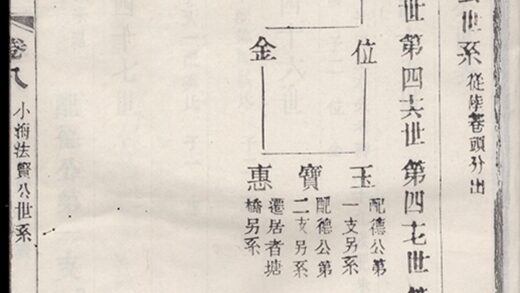 世系 從陸卷頭分出
世 第四六世 第四七世
位
金
玉 配德公第一支另系
寶 配德公第二支另系
惠 遷居者塘橋另系
卷八 小海法賢公世系